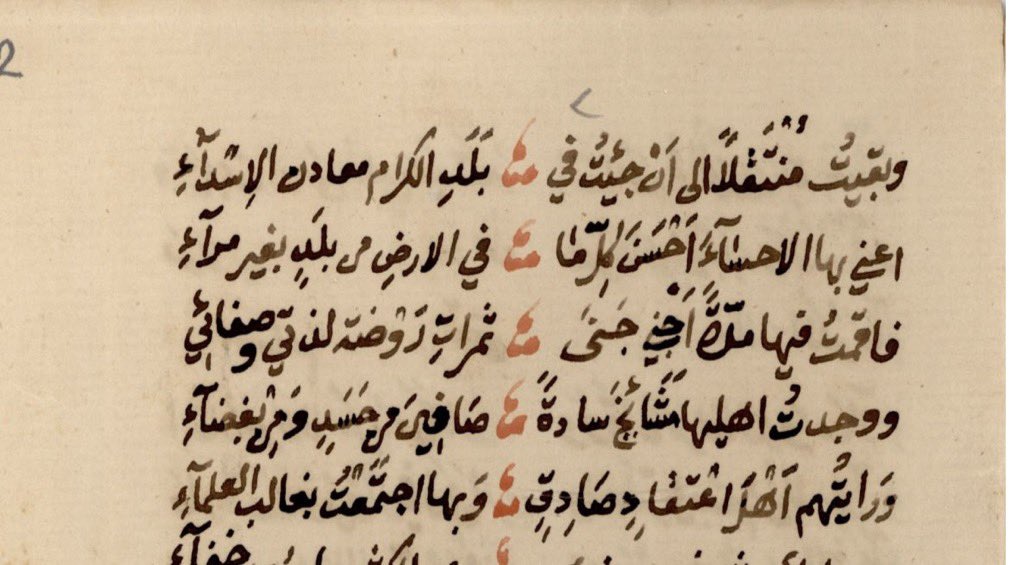 2
وبقيتُ مُنْتَقِلاً الى اَنْ جئِيتُ في بَلَدِ الكرام معادن الاِسْدَآءِ
اعني بها الاحسَآءَ اَحْسَنَ كلِّ مَا في الارضِ من بلَدٍ بغير مرآءِ
فاقمتُ فيها مدّةً اَجْنِي جَنَى ثمراتِ رَوْضَة لذتي وصفائِي
ووجدتُ اهليها مَشَائِخَ سادةً صَافِينَ مِن حَسَدِ وَمِنْ بَغضَآءِ
وَرايتُهم اَهْلَ اعْتقادِ صَادِقٍ وَبها اجتَمَعْتُ بغالب العلمآءِ